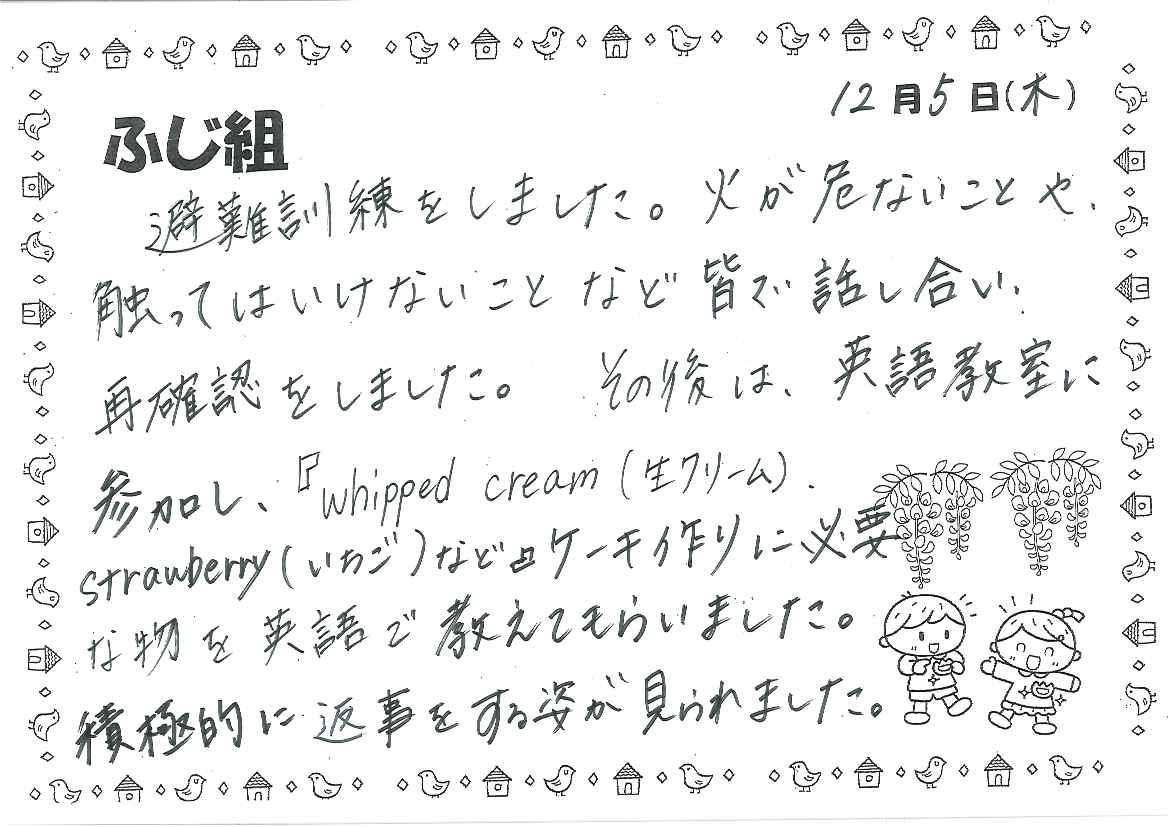 12月5日(木)
ふじ組
避難訓練をしました。火が危ないことや、
触ってはいけないことなど皆で話し合い、
再確認をしました。 その後は、英語教室に
参加し、『whipped cream(生クリーム)、
strawberry(いちご)など』ケーキ作りに必要
な物を英語で教えてもらいました。
積極的に返事をする姿が見られました。